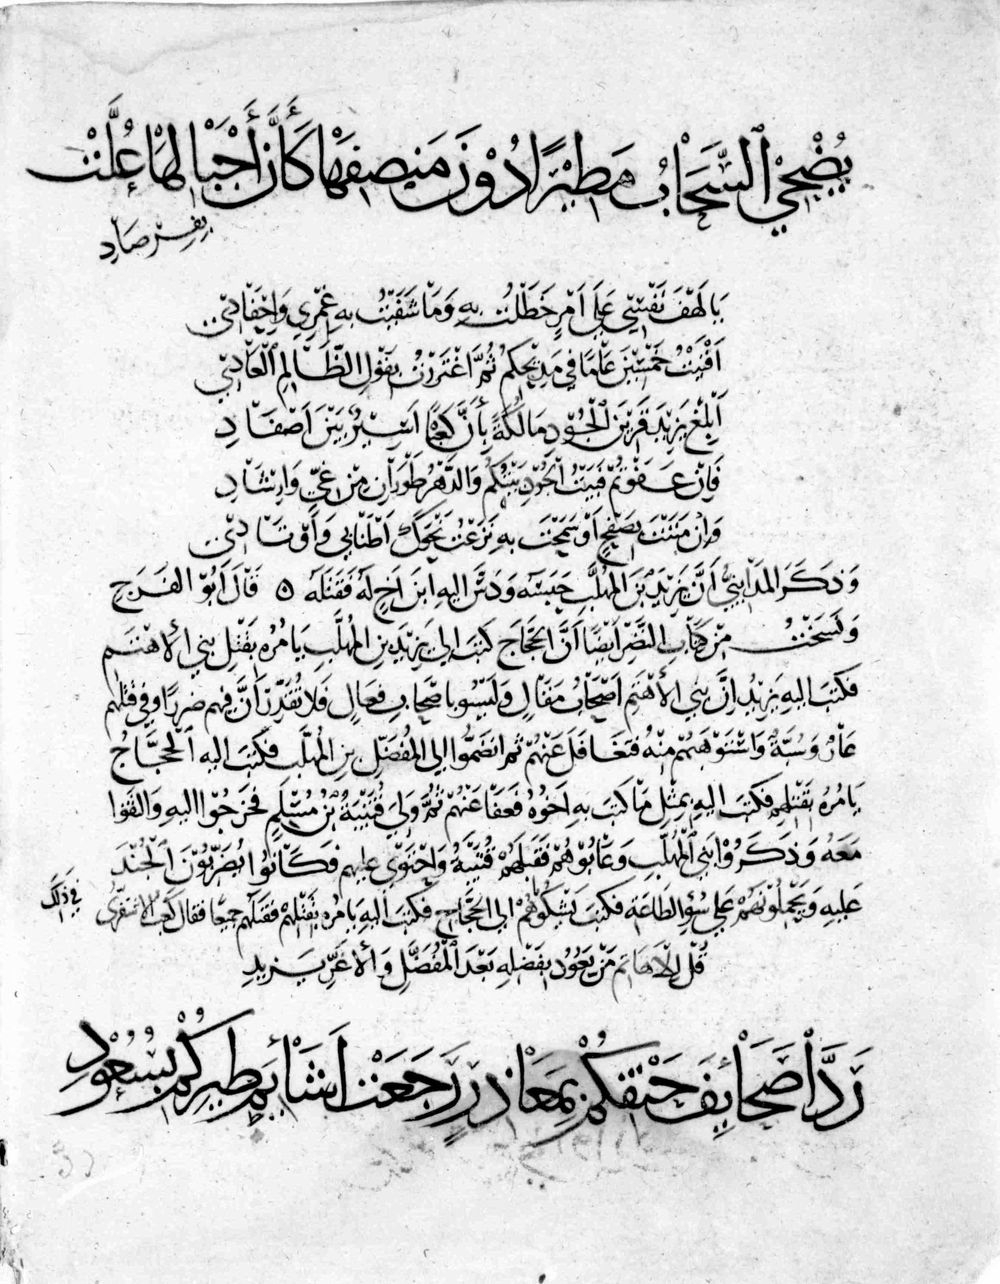 يُضْحِي ٱلسَّحَابُ مَطِيْرًا دُوْنَ مَنصِفِهَا كَأَنَّ أَجْبَالَهَا عُلَّتْ
بِفِرْصَادِ
يَا لَهْفَ نَفْسِي عَلَى اَمْرٍ خَطَلْتُ بِهِ وَمَا شَفَيْتُ بِهِ غِمْرِي وَاِحْقَادِيْ
اَفْنَيْتُ خَمْسِيْنَ عَامًا فِي مَدِيْحِكُمُ ثُمَّ اغْتَرَرْتُ بِقَوْلِ الظَّالِمِ ٱلْعَادِيْ
اَبْلِغْ يَزِيْدَ قَرِيْنَ ٱلْجُوْدِ مَالُكَةً بِأَنَّ كَعْبًا اَسِيْرٌ بَيْنَ اَصْفَادِ
فَاِنْ عَفَوْتُمْ فَبَيْتُ الْجُوْدِ بَيْتُكُمُ وَالدَّهْرُ طَوْرَانِ مِنْ غَيٍّ وَاِرْشَادِ
وَاِنْ مَنَنْتَ بِصَفْحٍ اَوْ سَمَحْتَ بِهِ نَزَعْتُ نَحْوَكَ اَطْنَابِي وَأَوْتَادِيْ
وَذَكَرَ المَدَايِنِيُّ اَنَّ يَزِيْدَ بْنَ المُهَلَّبِ حَبَسَهُ وَدَسَّ اليهِ ابنَ اخٍ لَهُ فَقَتَلَهُ ه قَالَ اَبُوْ الفَرَجِ
وَنَسَخْتُ مِنْ كِتَابِ النَّضْرِ اَيْضًا اَنَّ الحَجَّاجَ كَتَبَ الى يَزِيْدَ بنِ المُهَلَّبِ يَامُرُهُ بِقَتْلِ بَنِي الْأَهْتَمِ
فكَتَبَ اليهِ يَزِيْدُ اِنَّ بَنِي الْأَهْتَمِ اَصْحَابُ مَقَالٍ وَلَيْسُو باصْحَابِ فِعَالٍ فَلَا تُقَدِّرْ اَنَّ فِيهِم ضَرَرًا وَفِي قَتْلِهِمْ
عَارٌ وَسُبَّةٌ وَاسْتَوْهَبَهُمْ مِنْهُ فَتَغَافَلَ عَنْهُمْ ثم انضَمُّوا الى المُفَضَّلِ بنِ المُهَلَّبِ فكَتَبَ اليه ٱلْحَجَّاجُ
يَامُرُهُ بِقَتْلِهِمْ فكَتَبَ اليهِ بِمِثْلِ مَا كَتَبَ بِهِ اَخُوْهُ فَعَفَا عَنْهُمْ ثُمَّ وَلِيَ قُتَيْبَةُ بْنُ مُسْلِمٍ فخَرَجُوْا اليهِ وَالتَقَوْا
مَعَهُ وَذَكَرُوْا بَنِي ٱلْمُهَلَّبِ وَعَابُوْهُمْ فَقَبِلَهُمْ قُتَيْبَةُ وَاحْتَوَى عليهِم فَكَانُوْا يُضَرِّبُوْنَ ٱلْجُنْدَ
عَلَيْهِ وَيَحْمِلُوْنَهُمْ عَلَى سُوْءِ الطَاعَةِ فكَتَبَ يَشْكُوْهُمْ الى الحَجَّاجِ فكَتَبَ اليهِ يَامُرُه بِقَتْلِهِمْ فَقَتَلَهُم جَميعًا فقَالَ كَعْبٌ الاَشْقَرِيُّ في ذلك
قُلْ لِلْاَهَاتِمِ مَنْ يَعُوْدُ بِفَضْلِهِ بَعْدَ ٱلْمُفَضَّلِ وَٱلْأَغَرِّ يَزِيْدِ
رَدَّا صَحَائِفَ حَتْفِكُمْ بِمَعَاذِرٍ رَجَعَتْ اَشَائِمَ طَيْرِكُمْ بِسُعُوْدِ